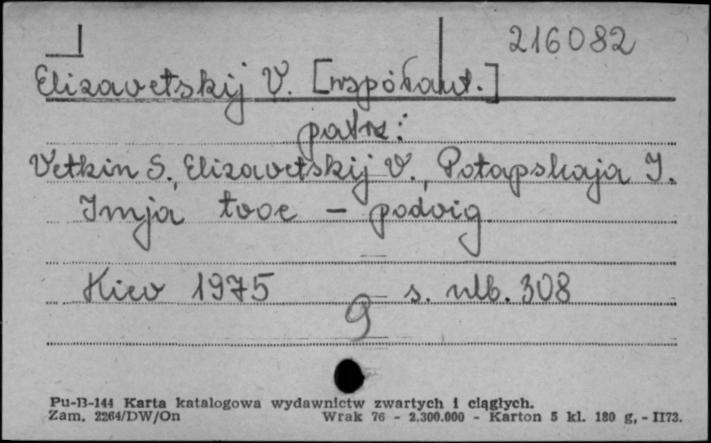 216082
Elizavetskij V. [współaut.]
patrz:
Vetkin S., Elizavetskij V., Potapskaja I.
Imja tvoe - podvig.
Kiev 1975 s. nlb. 308
9
Pu-B-144 Karta katalogowa wydawnictw zwartych i ciągłych.
Zam. 2264/DW/On Wrak 76 - 2.300.000 - Karton 5 kl. 180 g, - II73.